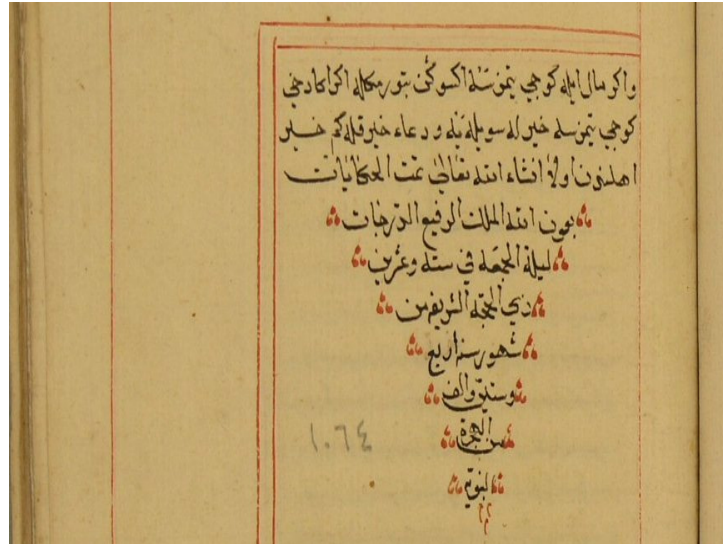 واكر مال ايله كوجي يتمزسه اكسوكن بتورمكله اكر اكا دخي
كوجي يتمزسه خير له سويليه و دعاء خير قله كم خير
اهلندن اولا انشاء الله تعالى تمت الحكايات
بعون الله الملك الرفيع الدرجات
ليلة الجمعه في سته وعشرين
ذي الحجة الشريف من
شهور سنه اربع
وستين والف
من الهجرة
١٠٦٤
النبويه
م م